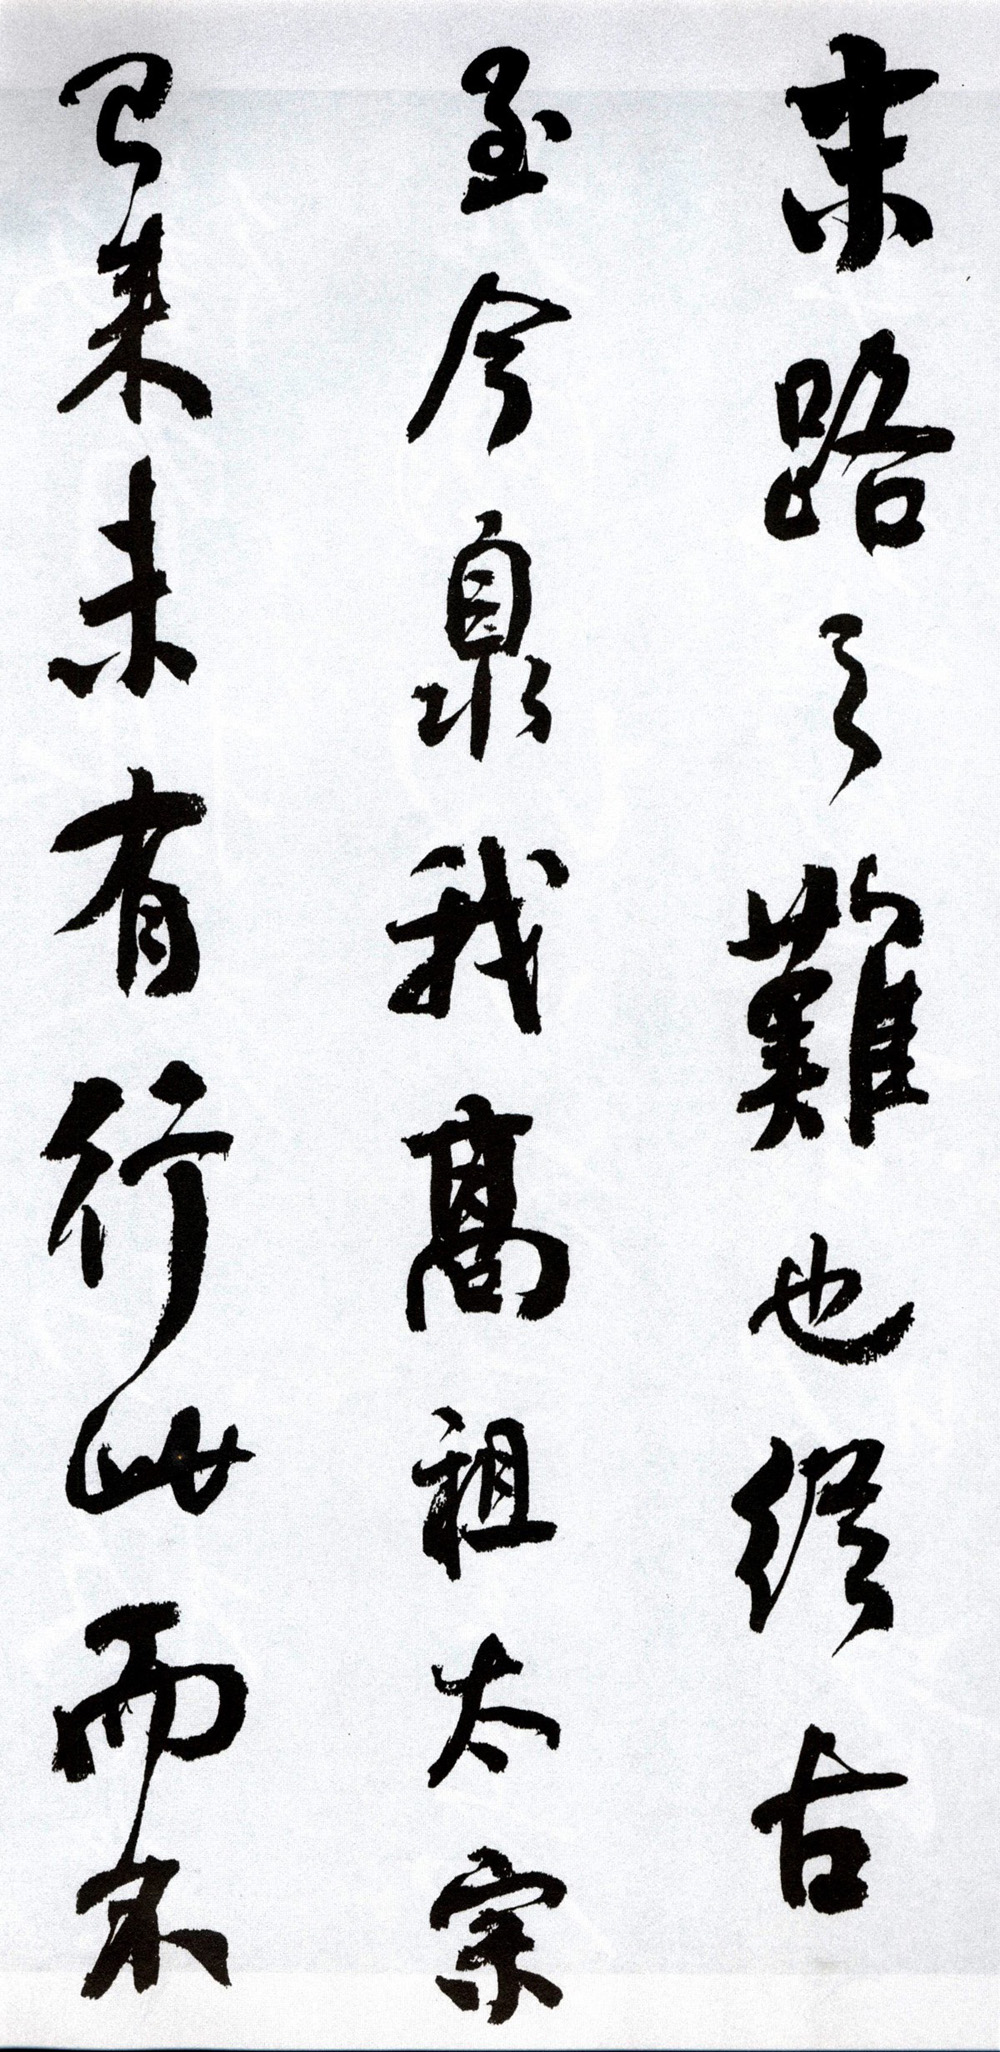 末路之難也從古
至今泉我高祖太宗
已來未有行此而不